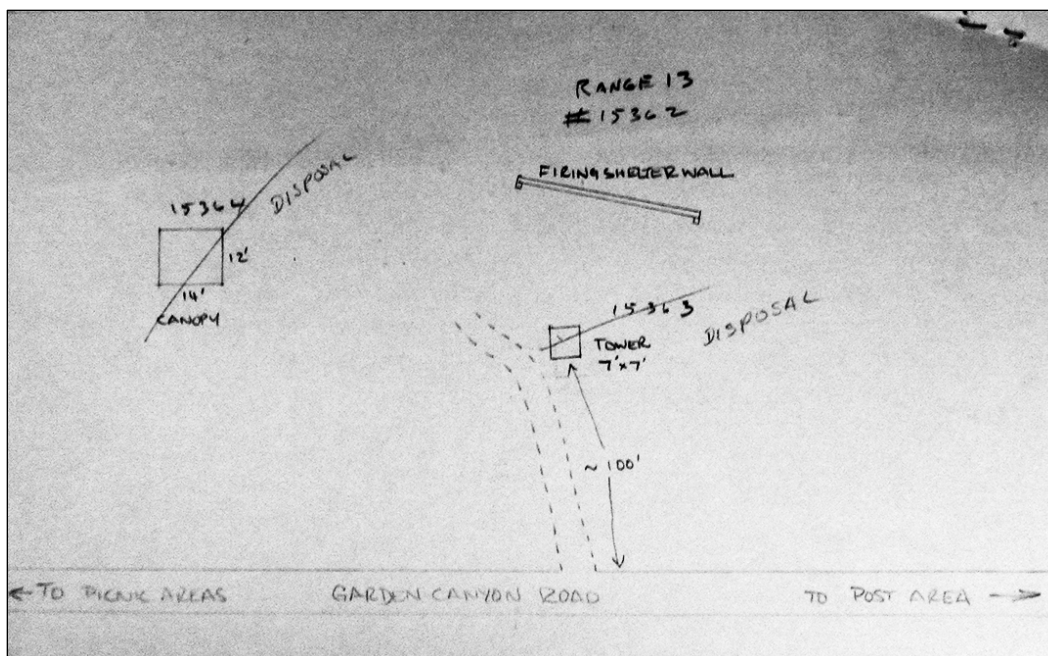 RANGE 13
# 15362
FIRING SHELTER WALL
DISPOSAL
15364
12'
14'
CANOPY
15363
DISPOSAL
TOWER
7'x7'
~ 100'
← TO PICNIC AREAS GARDEN CANYON ROAD TO POST AREA →